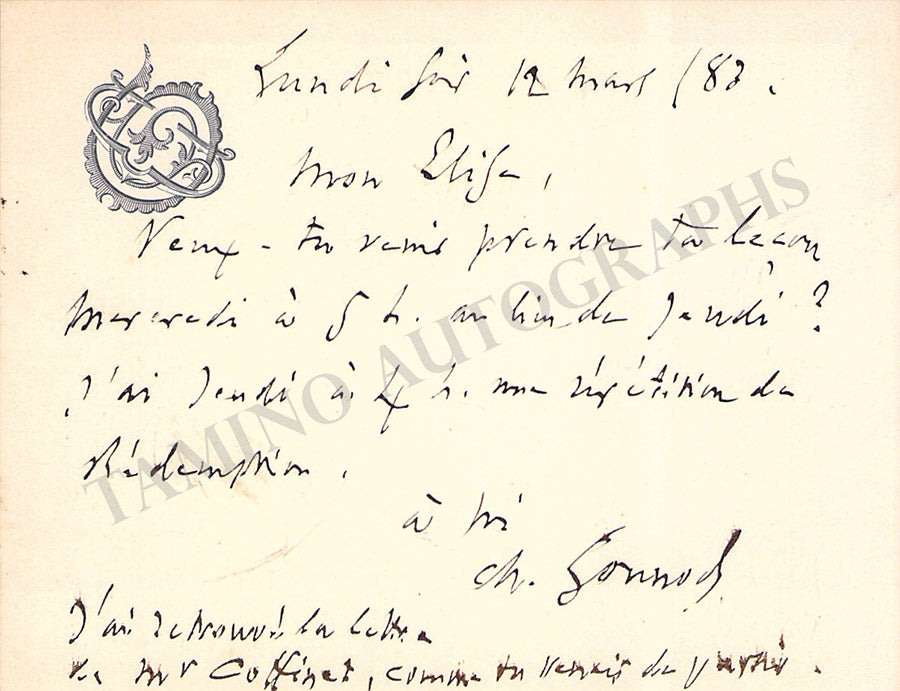 Lundi soir 12 mars /83.
Mon Elisa,
Veux-tu venir prendre ta leçon
mercredi à 5 h. au lieu de Jeudi ?
J'ai Jeudi à 4 h. une répétition de
Rédemption.
à toi
Ch. Gounod
J'ai retrouvé la lettre
de Mr Coffinet, comme tu venais de partir.
TAMINO AUTOGRAPHS